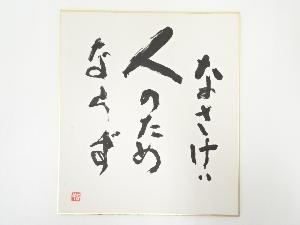 なさけは
人のため
ならず